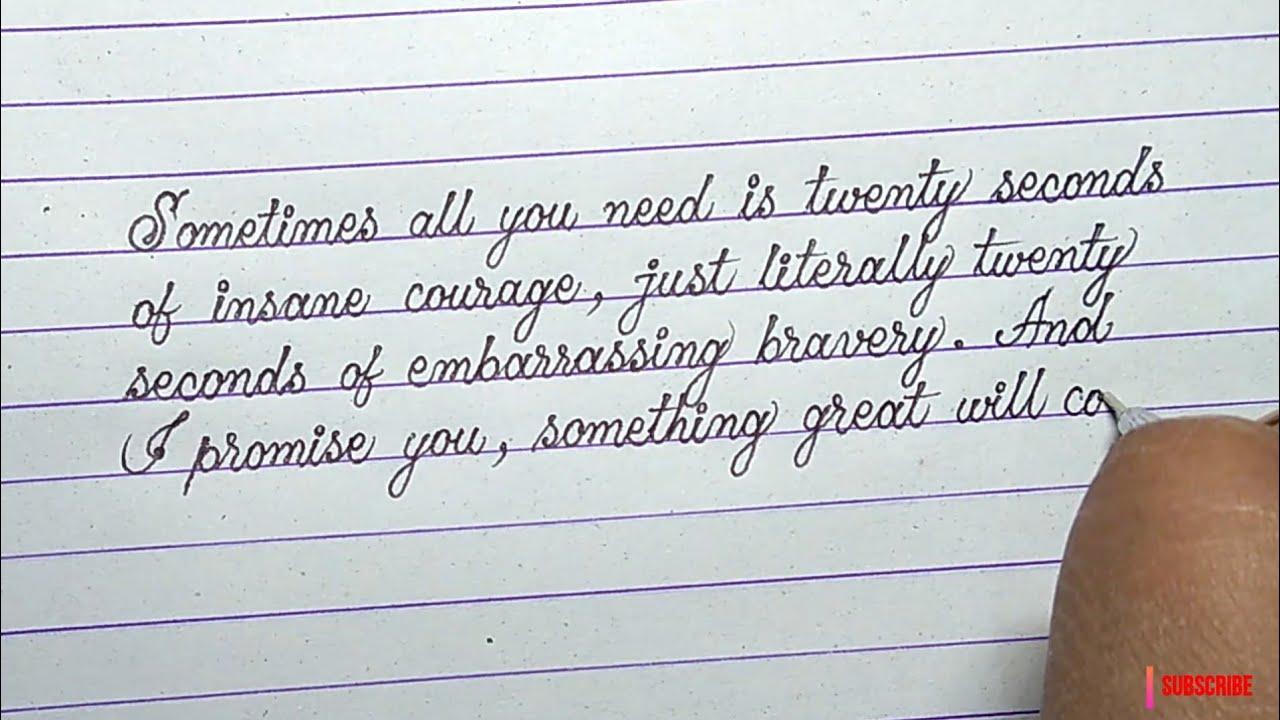 Sometimes all you need is twenty seconds
of insane courage, just literally twenty
seconds of embarrassing bravery. And
I promise you, something great will co
SUBSCRIBE